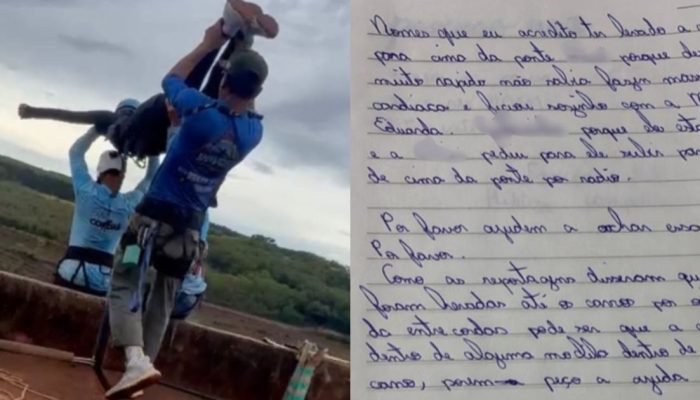 Nomes que eu acredito ter levado a
para cima da ponte porque de
muito rapido não sabia fazer mas
cardiaca e ficou sozinho com a
Eduarda. porque do
e a pediu para ele subir par
de cima da ponte por radio.
Por favor ajudem a achar essa
Por favor.
Como as reportagns disseram que
foram levadas até o carro por
da entre cordas pode ser que a
dentro de alguma mochila dentro de
carro, porem peço a ajuda